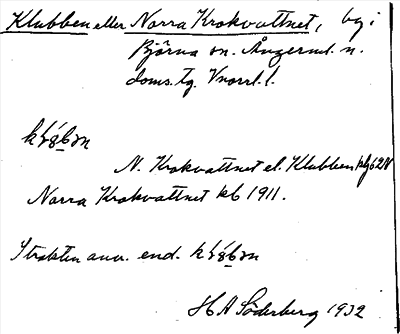 Klubben eller Norra Krokvattnet, by i
Björna sn. Ångerml. n.
doms. tg. Vnorrl. l.
N. Krokvattnet el. Klubben
Norra Krokvattnet kb 1911.
Trakten anv. end.
H A Söderberg 1932